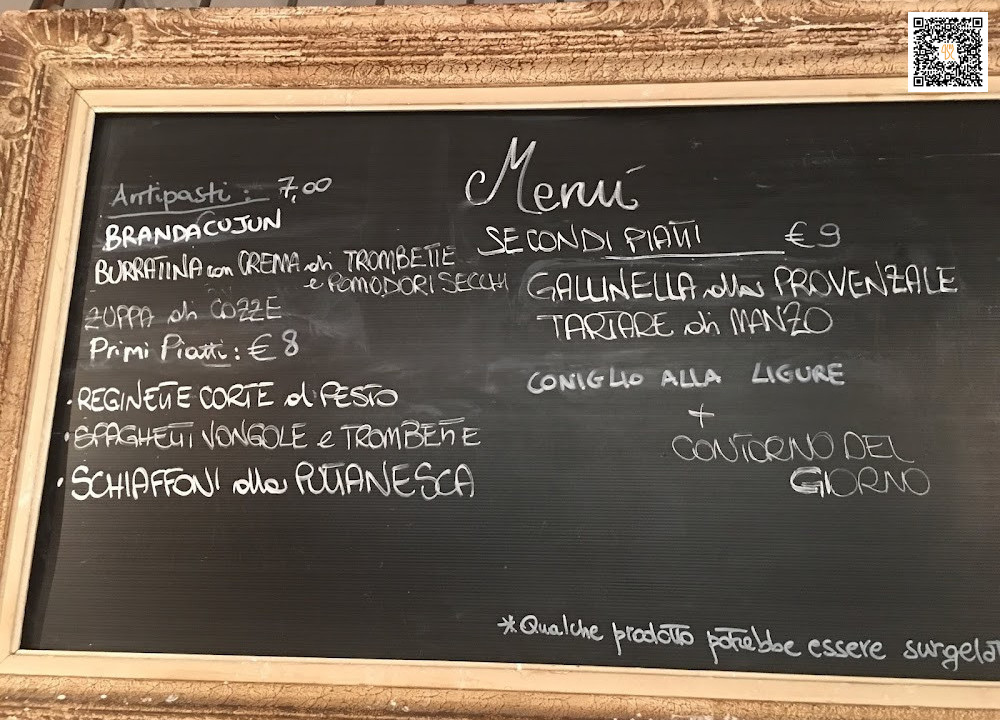 Menú
Antipasti: 7,00
BRANDACUJUN
BURRATINA con CREMA di TROMBETTE
e POMODORI SECCHI
ZUPPA di COZZE
Primi Piatti: € 8
· REGINETTE CORTE al PESTO
· SPAGHETTI VONGOLE e TROMBETTE
· SCHIAFFONI alla PUTTANESCA
SECONDI PIATTI €9
GALLINELLA alla PROVENZALE
TARTARE di MANZO
CONIGLIO ALLA LIGURE
+
CONTORNO DEL
GIORNO
*Qualche prodotto potrebbe essere surgelat